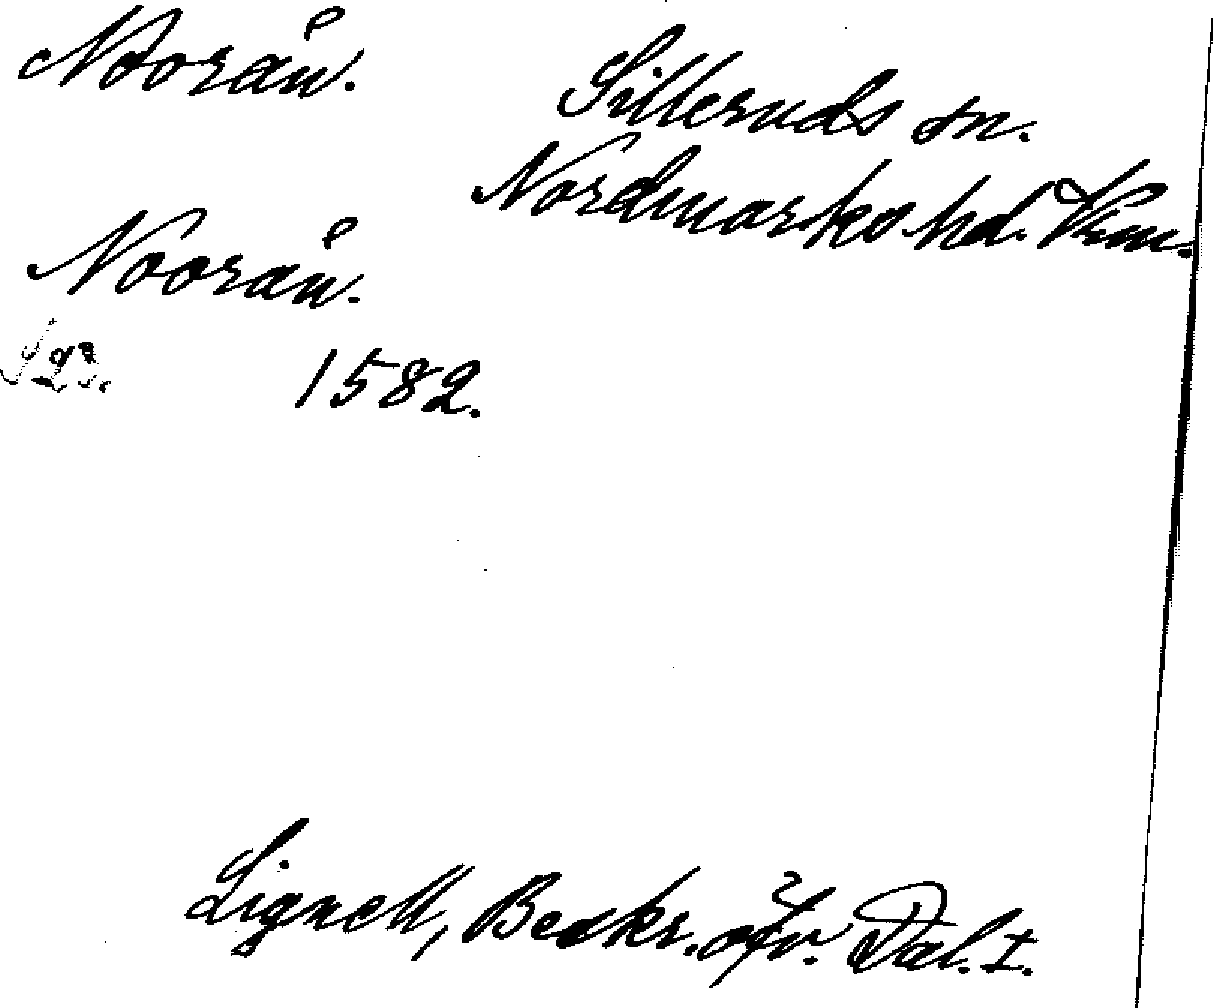 Noorån.
Silleruds sn.
Nordmarks hd. Vrm.
Noorån.
1582.
Lignell, Beskr. öfv. Dal. I.